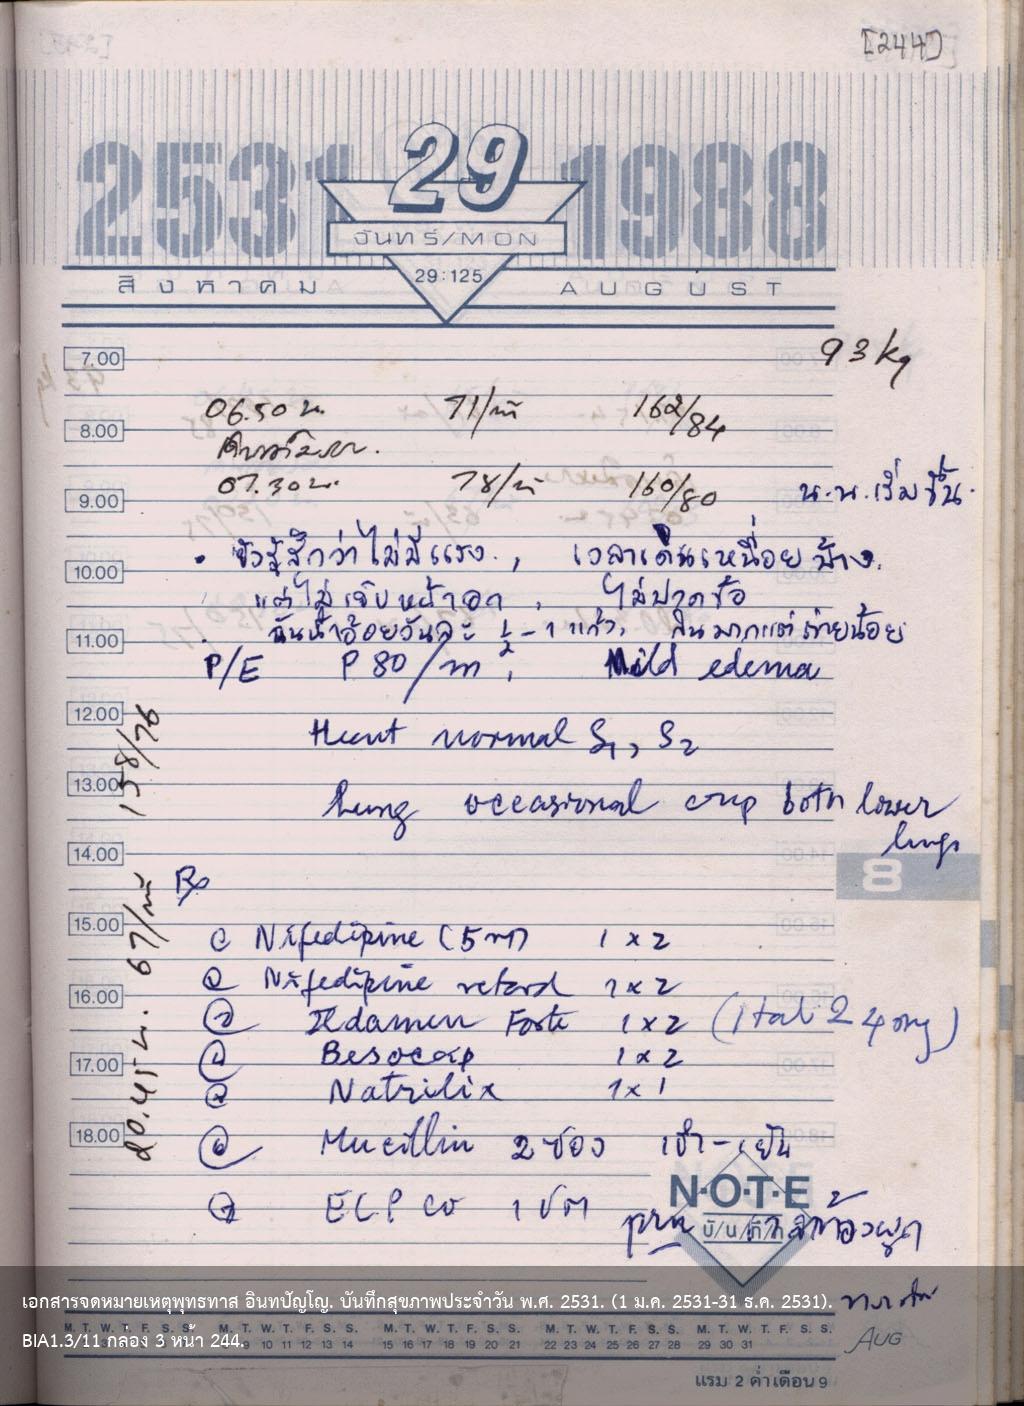 [244]
2531 29 1988
จันทร์/MON
29:125
สิงหาคม AUGUST
93 kg
7.00
06.50 น. 71/นาที 162/84
8.00
07.30 น. 78/น 160/80 น.น. เริ่มขึ้น.
9.00
รู้สึกว่าไม่มีแรง, เวลาเดินเหนื่อยบ้าง.
10.00
แต่ไม่เจ็บหน้าอก, ไม่ปวดข้อ
ฉันน้ำอ้อยวันละ ½-1 แก้ว,
11.00
P/E P 80/m, Mild edema
12.00
Heart normal S1, S2
158/76
13.00
Lung occasional crep both lower lungs
14.00
8
Rx
67/นาที
15.00
๑ Nifedipine (5 mg) 1 x 2
๒ Nifedipine retard 1 x 2
16.00
๓ Isdamen Forte 1 x 2 (1 tab = 240 mg)
๔ Besocap 1 x 2
17.00
๕ Natrilix 1 x 1
20.45 น.
18.00
๖ Mucillin 2 ซอง เช้า-เย็น
๗ ECP co 1 เม็ด ถ้าท้องผูก
N·O·T·E
บันทึก
เอกสารจดหมายเหตุพุทธทาส อินทปัญโญ. บันทึกสุขภาพประจำวัน พ.ศ. 2531. (1 ม.ค. 2531-31 ธ.ค. 2531).
BIA1.3/11 กล่อง 3 หน้า 244.
M. T. W. T. F. S. S. M. T. W. T. F. S. S. M. T. W. T. F. S. S. M. T. W. T. F. S. S. M. T. W. T. F. S. S.
9 10 11 12 13 14 15 16 17 18 19 20 21 22 23 24 25 26 27 28 29 30 31
AUG
แรม 2 ค่ำเดือน 9